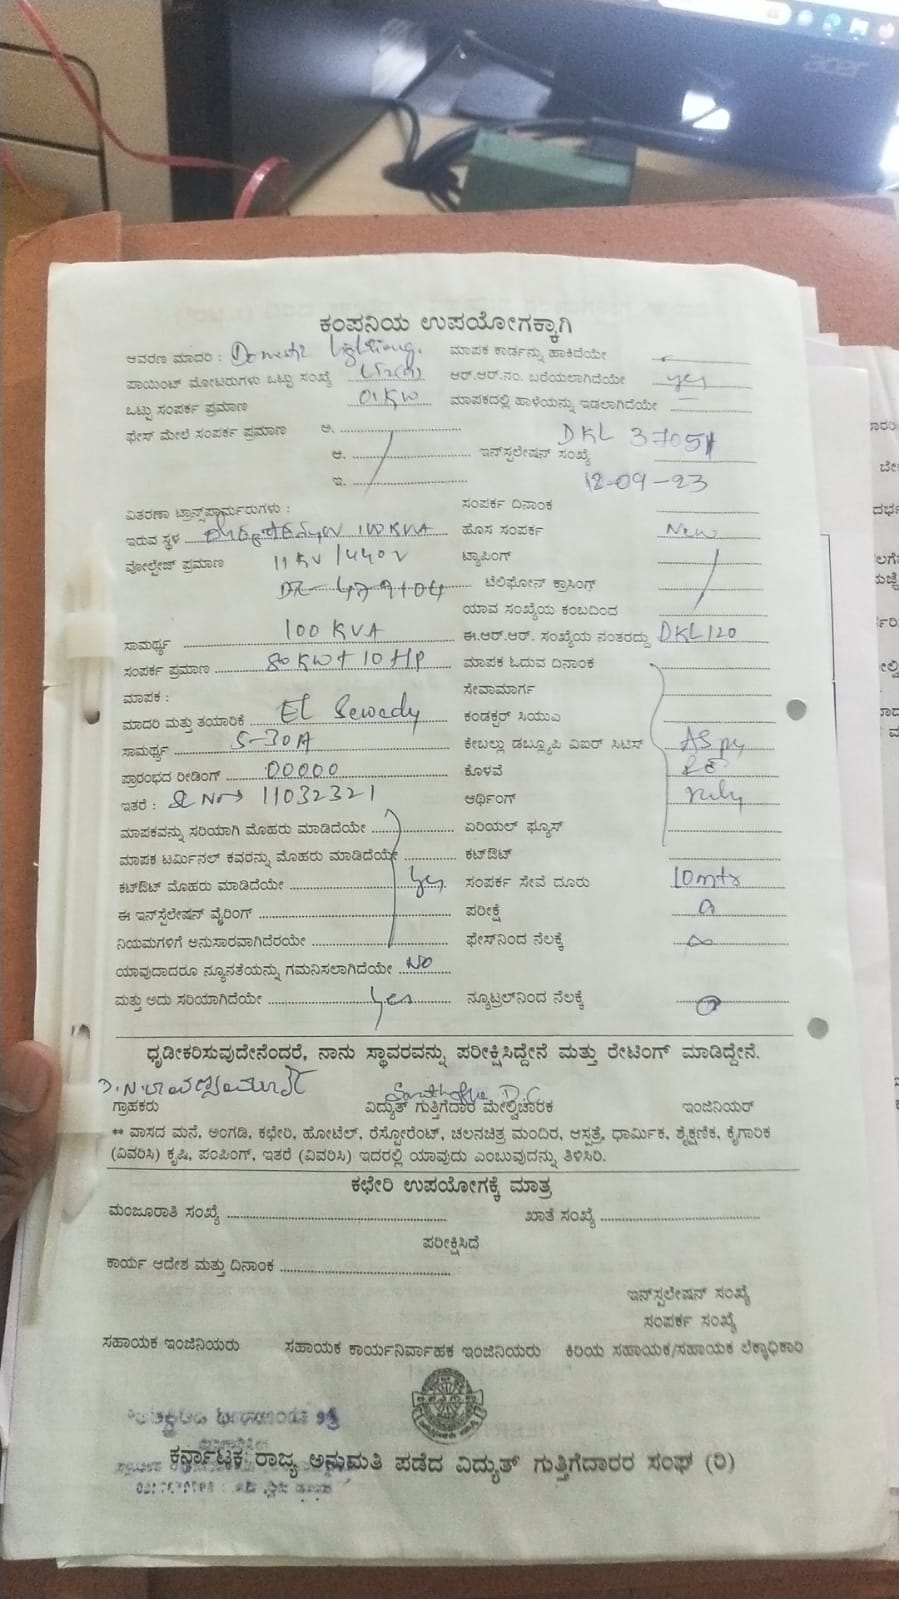 acer
ಕಂಪನಿಯ ಉಪಯೋಗಕ್ಕಾಗಿ
ಆವರಣ ಮಾದರಿ : Domestic lighting. ಮಾಪಕ ಕಾರ್ಡನ್ನು ಹಾಕಿದೆಯೇ
ಪಾಯಿಂಟ್ ಮೋಟರುಗಳು ಒಟ್ಟು ಸಂಖ್ಯೆ ಆರ್.ಆರ್.ನಂ. ಬರೆಯಲಾಗಿದೆಯೇ yes
ಒಟ್ಟು ಸಂಪರ್ಕ ಪ್ರಮಾಣ 01KW ಮಾಪಕದಲ್ಲಿ ಹಾಳೆಯನ್ನು ಇಡಲಾಗಿದೆಯೇ
ಫೇಸ್ ಮೇಲೆ ಸಂಪರ್ಕ ಪ್ರಮಾಣ ಅ.
ಆ. ಇನ್‌ಸ್ಟಲೇಷನ್ ಸಂಖ್ಯೆ DKL 37051
ಇ. 12-09-23
ವಿತರಣಾ ಟ್ರಾನ್ಸ್‌ಫಾರ್ಮರುಗಳು : ಸಂಪರ್ಕ ದಿನಾಂಕ
ಇರುವ ಸ್ಥಳ 100KVA ಹೊಸ ಸಂಪರ್ಕ New
ವೋಲ್ಟೇಜ್ ಪ್ರಮಾಣ 11KV/440V ಟ್ಯಾಪಿಂಗ್
ಟೆಲಿಫೋನ್ ಕ್ರಾಸಿಂಗ್
ಯಾವ ಸಂಖ್ಯೆಯ ಕಂಬದಿಂದ
ಸಾಮರ್ಥ್ಯ 100 KVA ಈ.ಆರ್.ಆರ್. ಸಂಖ್ಯೆಯ ನಂತರದ್ದು DKL120
ಸಂಪರ್ಕ ಪ್ರಮಾಣ 80KW+10HP ಮಾಪಕ ಓದುವ ದಿನಾಂಕ
ಮಾಪಕ : ಸೇವಾಮಾರ್ಗ
ಮಾದರಿ ಮತ್ತು ತಯಾರಿಕೆ El Sewedy ಕಂಡಕ್ಟರ್ ಸಿಯುಎ
ಸಾಮರ್ಥ್ಯ 5-30A ಕೇಬಲ್ಲು ಡಬ್ಲ್ಯೂಪಿ ವಿಐರ್ ಸಿಟಿಸ್ AS per
ಪ್ರಾರಂಭದ ರೀಡಿಂಗ್ 00000 ಕೊಳವೆ
ಇತರೆ : Sl No→ 11032321 ಆರ್ಥಿಂಗ್ rule
ಮಾಪಕವನ್ನು ಸರಿಯಾಗಿ ಮೊಹರು ಮಾಡಿದೆಯೇ ಏರಿಯಲ್ ಫ್ಯೂಸ್
ಮಾಪಕ ಟರ್ಮಿನಲ್ ಕವರನ್ನು ಮೊಹರು ಮಾಡಿದೆಯೇ ಕಟ್‌ಔಟ್
ಕಟ್‌ಔಟ್ ಮೊಹರು ಮಾಡಿದೆಯೇ Yes ಸಂಪರ್ಕ ಸೇವೆ ದೂರು 10mtr
ಈ ಇನ್‌ಸ್ಟೆಲೇಷನ್ ವೈರಿಂಗ್ ಪರೀಕ್ಷೆ
ನಿಯಮಗಳಿಗೆ ಅನುಸಾರವಾಗಿದೆರಯೇ ಫೇಸ್‌ನಿಂದ ನೆಲಕ್ಕೆ ∞
ಯಾವುದಾದರೂ ನ್ಯೂನತೆಯನ್ನು ಗಮನಿಸಲಾಗಿದೆಯೇ NO
ಮತ್ತು ಅದು ಸರಿಯಾಗಿದೆಯೇ Yes ನ್ಯೂಟ್ರಲ್‌ನಿಂದ ನೆಲಕ್ಕೆ
ಧೃಡೀಕರಿಸುವುದೇನೆಂದರೆ, ನಾನು ಸ್ಥಾವರವನ್ನು ಪರೀಕ್ಷಿಸಿದ್ದೇನೆ ಮತ್ತು ರೇಟಿಂಗ್ ಮಾಡಿದ್ದೇನೆ.
ಗ್ರಾಹಕರು ವಿದ್ಯುತ್ ಗುತ್ತಿಗೆದಾರ ಮೇಲ್ವಿಚಾರಕ ಇಂಜಿನಿಯರ್
** ವಾಸದ ಮನೆ, ಅಂಗಡಿ, ಕಛೇರಿ, ಹೋಟೆಲ್, ರೆಸ್ಟೋರೆಂಟ್, ಚಲನಚಿತ್ರ ಮಂದಿರ, ಆಸ್ಪತ್ರೆ, ಧಾರ್ಮಿಕ, ಶೈಕ್ಷಣಿಕ, ಕೈಗಾರಿಕ
(ವಿವರಿಸಿ) ಕೃಷಿ, ಪಂಪಿಂಗ್, ಇತರೆ (ವಿವರಿಸಿ) ಇದರಲ್ಲಿ ಯಾವುದು ಎಂಬುವುದನ್ನು ತಿಳಿಸಿರಿ.
ಕಛೇರಿ ಉಪಯೋಗಕ್ಕೆ ಮಾತ್ರ
ಮಂಜೂರಾತಿ ಸಂಖ್ಯೆ ಖಾತೆ ಸಂಖ್ಯೆ
ಪರೀಕ್ಷಿಸಿದೆ
ಕಾರ್ಯ ಆದೇಶ ಮತ್ತು ದಿನಾಂಕ
ಇನ್‌ಸ್ಟಲೇಷನ್ ಸಂಖ್ಯೆ
ಸಂಪರ್ಕ ಸಂಖ್ಯೆ
ಸಹಾಯಕ ಇಂಜಿನಿಯರು ಸಹಾಯಕ ಕಾರ್ಯನಿರ್ವಾಹಕ ಇಂಜಿನಿಯರು ಕಿರಿಯ ಸಹಾಯಕ/ಸಹಾಯಕ ಲೆಕ್ಕಾಧಿಕಾರಿ
ಕರ್ನಾಟಕ ರಾಜ್ಯ ಅನುಮತಿ ಪಡೆದ ವಿದ್ಯುತ್ ಗುತ್ತಿಗೆದಾರರ ಸಂಘ (ರಿ)